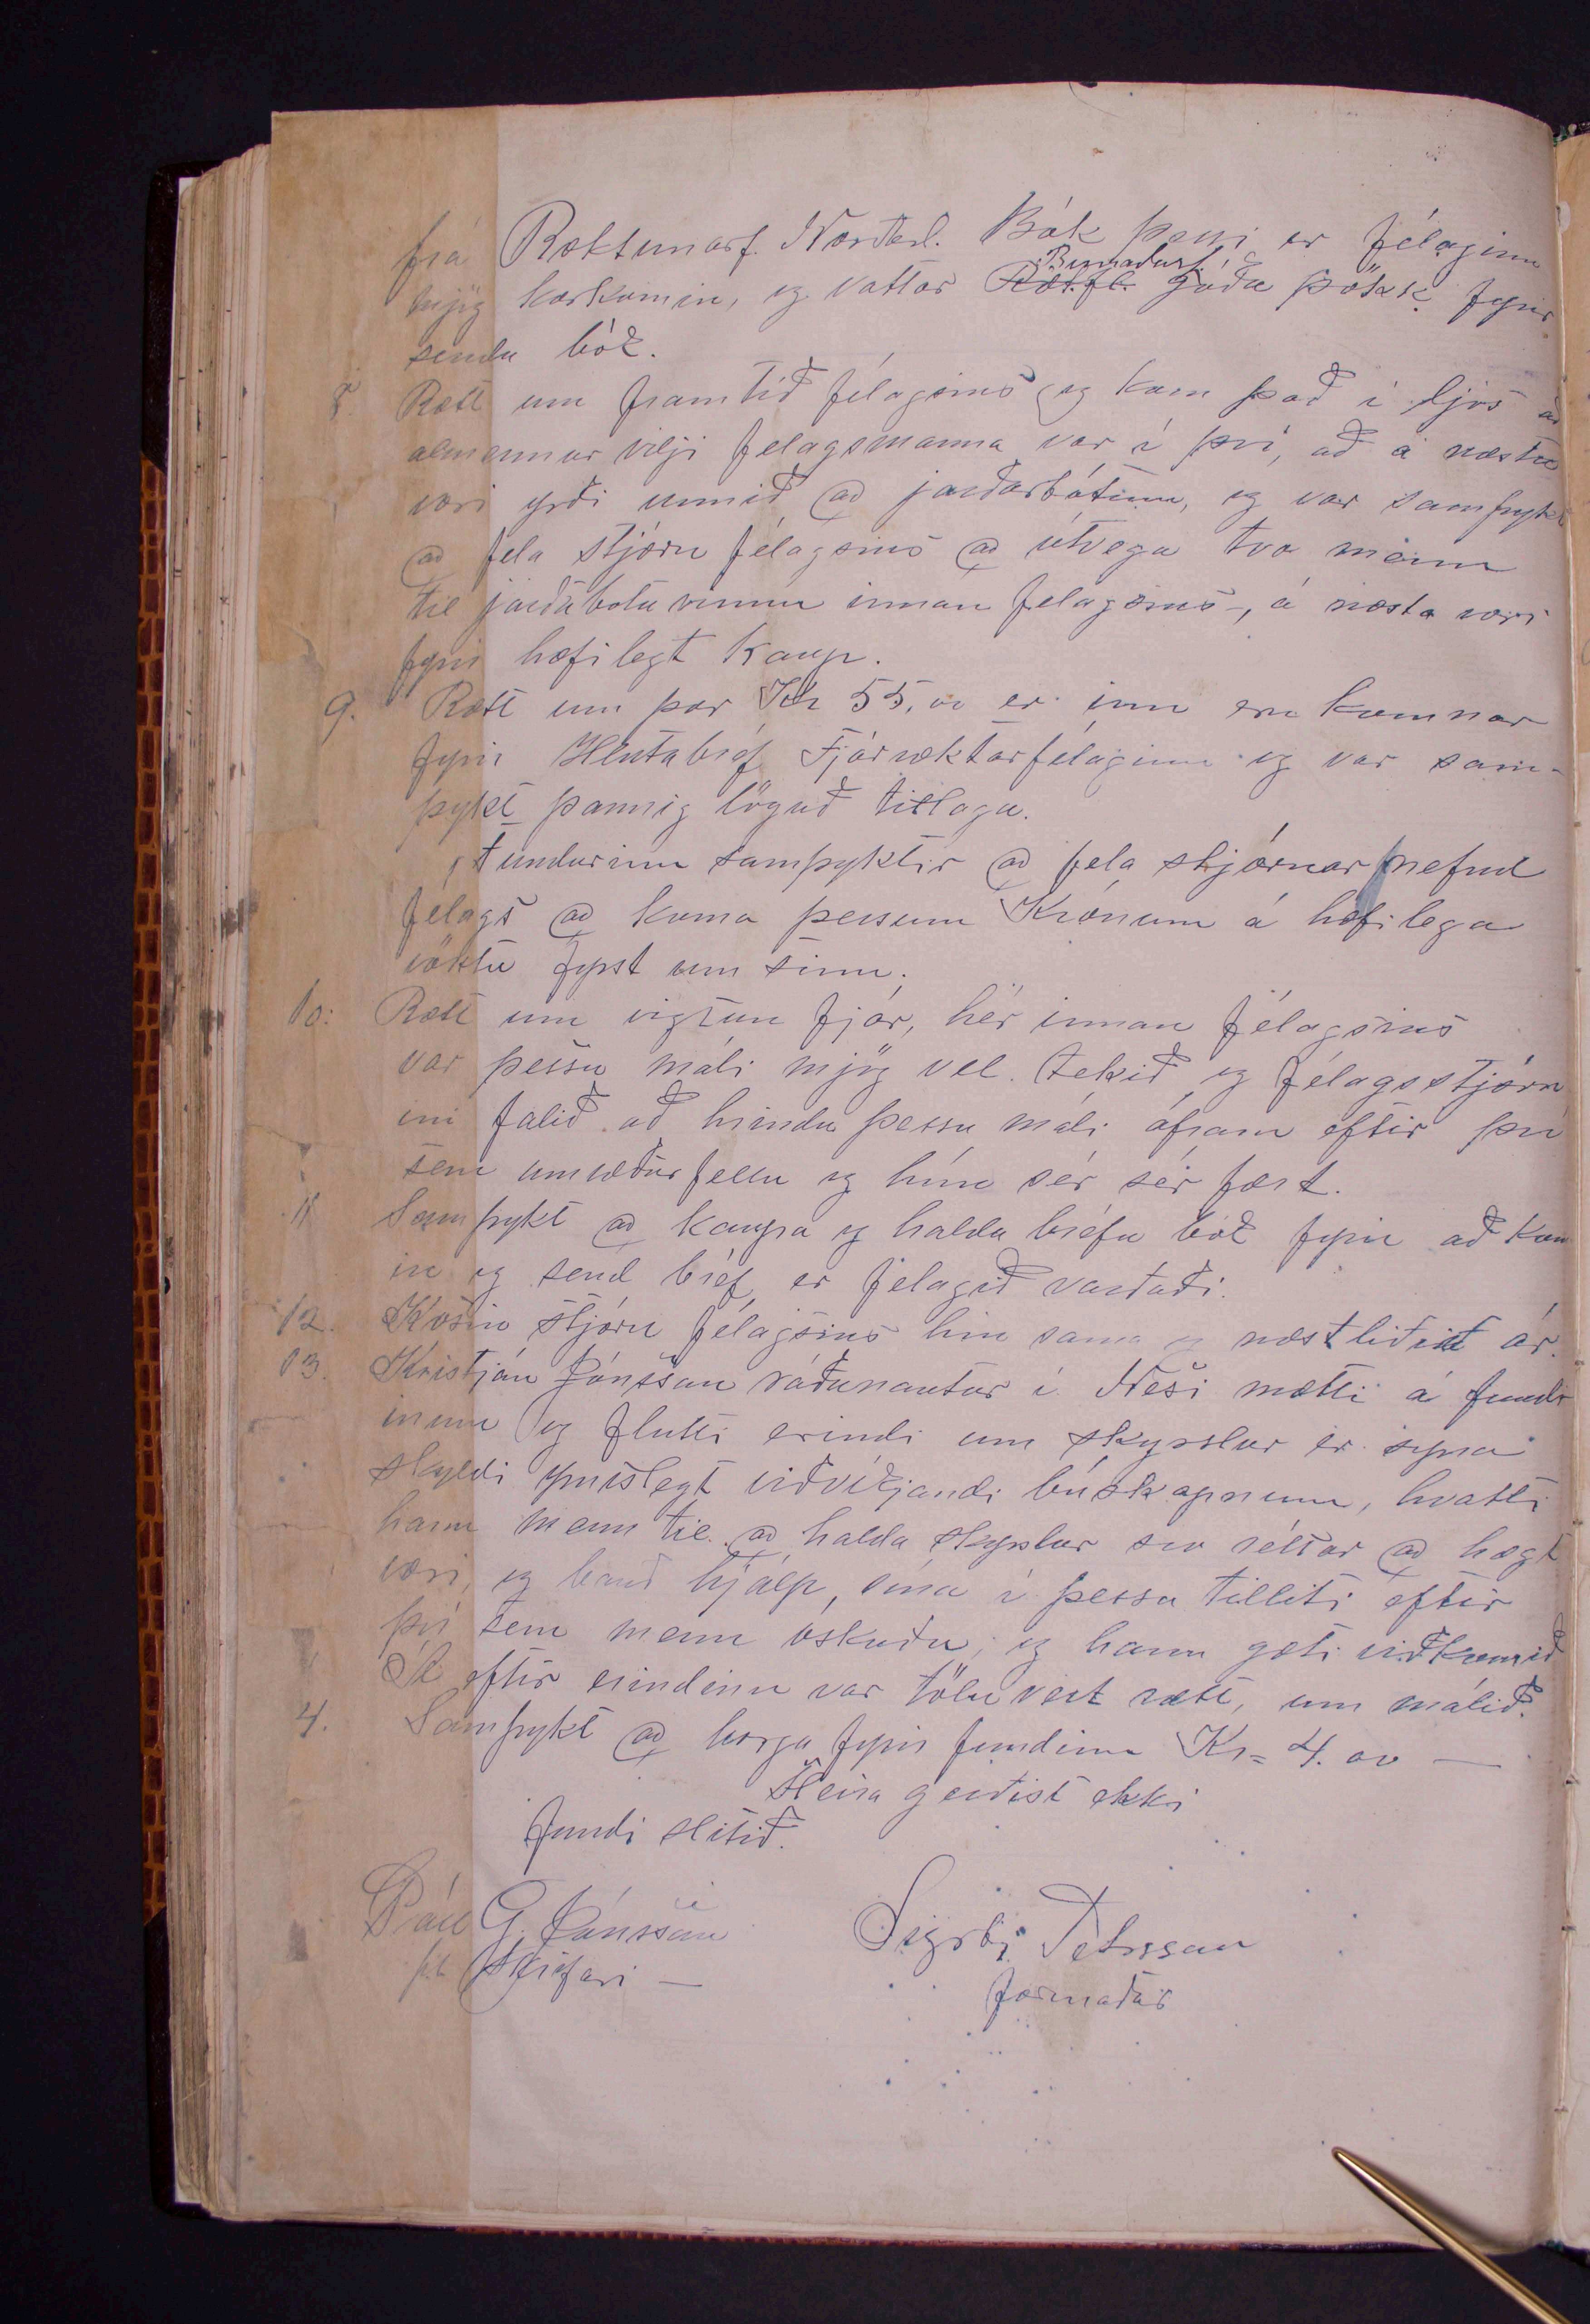 frá Ræktunarf. Norðerl. Bók þessi er félaginu
mjög kærkomin, og vottar Búnaðarf. góða þökk fyrir
senda bók.
8. Rætt um framtíð félagsins og kom það í ljós að
almennur vilji félagsmanna var í því, að á næstu
vori yrði unnið @ jarðarbótum, og var samþykt
@ fela stjórn félagsins @ útvega tvo menn
til jarðabótavinnu innan félagsins, á næsta vori
fyrir hæfilegt kaup.
9. Rætt um þær Kr 55,00 er inn eru komnar
fyrir Hlutabréf Fjárræktarfélaginu og var sam-
þykt þannig löguð tillaga.
„Fundurinn samþyktir @ fela stjórnarnefnd
félags @ koma þessum Krónum á hæfilega
vöktu fyrst um sinn.
10: Rætt um vigtun fjár, hér innan félagsins
var þessu máli mjög vel tekið og félagsstjórn
ini falið að hrinda þessu máli áfram eftir því
sem umræður fellu og hún sér sér fært.
11 Samþykt @ kaupa og halda bréfa bók fyrir að kom
in og send bréf, er félagið varðaði.
12. Kosin stjórn félagsins hin sama og næstliðið ár.
13. Kristján Jónsson ráðunautur í Nesi mætti á fundi
inum og flutti erindi um skyrslur er syna
skyldi ymislegt viðvíkjandi búskapnum, hvatti
hann menn til @ halda skyrslur svo réttar @ hægt
væri, og bauð hjálp, sína í þessu tilliti eftir
því sem menn óskuðu, og hann gæti viðkomið
Út eftir erindinu var töluvert rætt, um málið.
4. Samþykt @ borga fyrir fundinn Kr= 4.00 —
Fleira gerðist ekki
fundi slitið.
Páll G. Jónsson
p.t. skrifari —
Sigrbj. Petursson
formaður